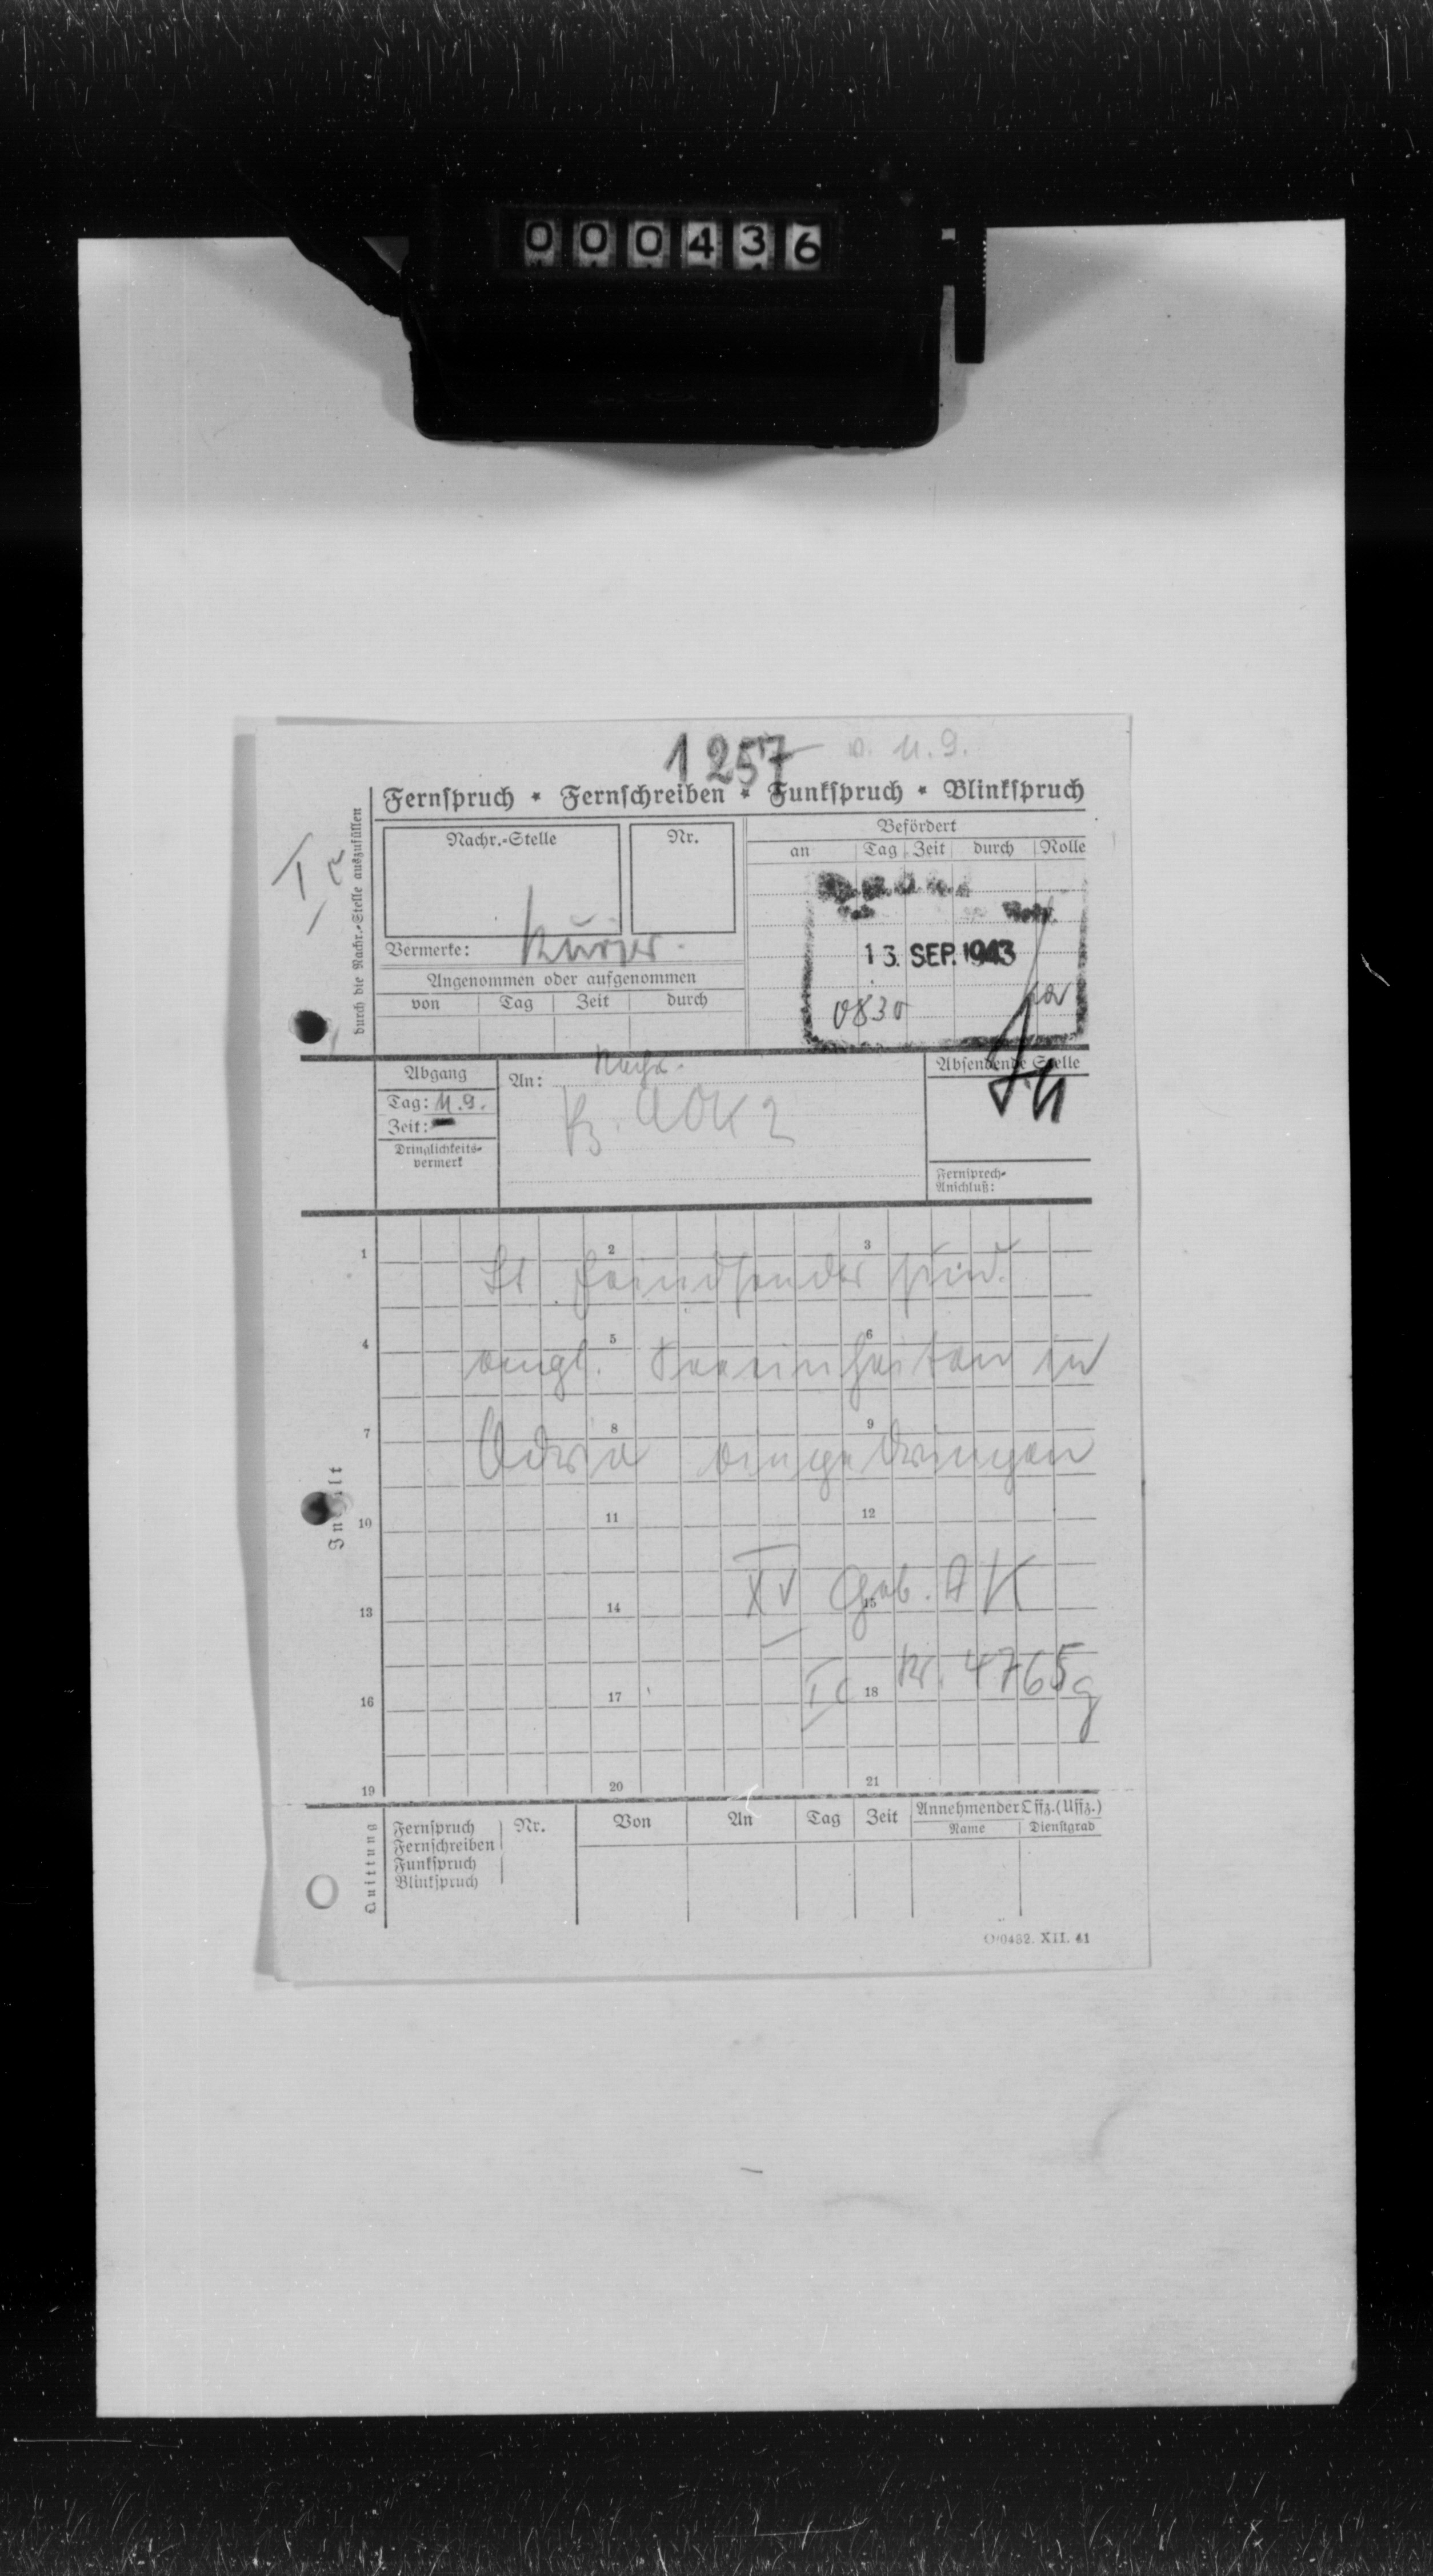 000436
1257 v. 11.9.
Fernspruch * Fernschreiben * Funkspruch * Blinkspruch
durch die Nachr.-Stelle auszufüllen
Ic
Nachr.-Stelle
Nr.
Befördert
an Tag Zeit durch Rolle
Vermerke: Kurier.
13. SEP. 1943
0830
Angenommen oder aufgenommen
von Tag Zeit durch
Abgang
Tag: 11.9.
Zeit:
Dringlichkeits-
vermerk
An:
Pz. AOK 2
Absendende Stelle
Fernsprech-
Anschluß:
Inhalt
1 2 3
Lt Feindsender sind
4 5 6
engl. Seeeinheiten in
7 8 9
Adria eingedrungen
10 11 12
XV Geb. AK
13 14 15
Ic Nr. 4765 g
16 17 18
19 20 21
Quittung
Fernspruch
Fernschreiben
Funkspruch
Blinkspruch
Nr. Von An Tag Zeit Annehmender Offz. (Uffz.)
Name Dienstgrad
O/0482. XII. 41